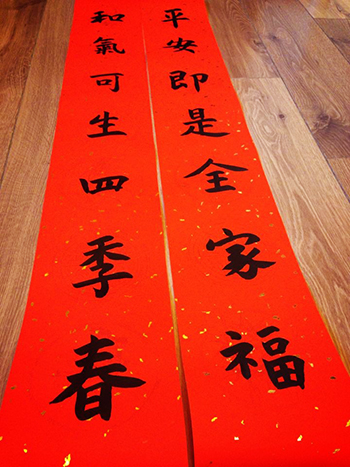 平安即是全家福
和氣可生四季春